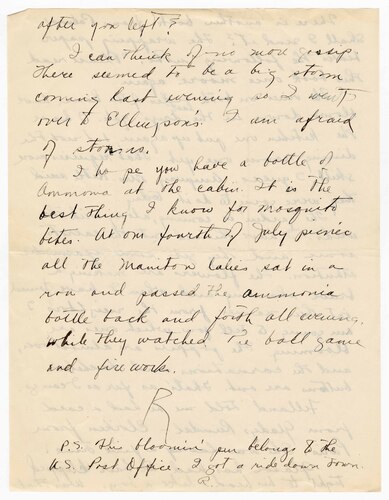 after you left?
I can think of no mod gossip.
There seemed to be a big storm
coming last evening so I went
over to Ellingson's. I am afraid
of storms.
I hope you have a bottle of
Ammona at the cabin. It is the
best thing I know for mosquito
bites. At our fourth of July picnic
all the Maniton ladies sat in a
row and passed the ammonia
bottle back and forth all evening,
while they watched the ball game
and fireworks.
R
P.S. This bloomin' pen belongs to the
U.S. Post Office. I got a ride down town.
R.